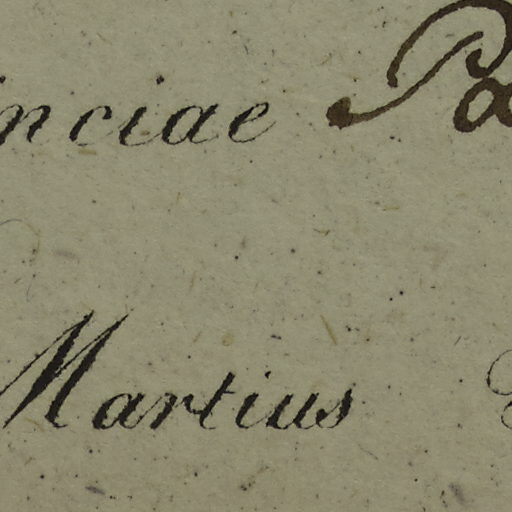 inciae Pa
Martius